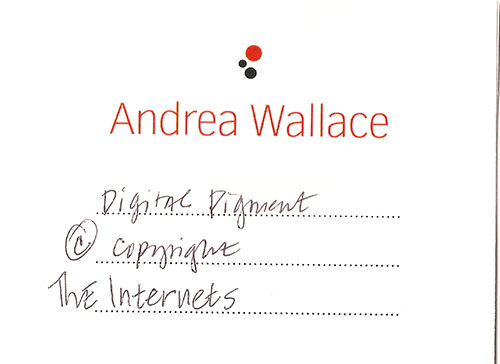 Andrea Wallace
Digital Pigment
© copyright
The Internets